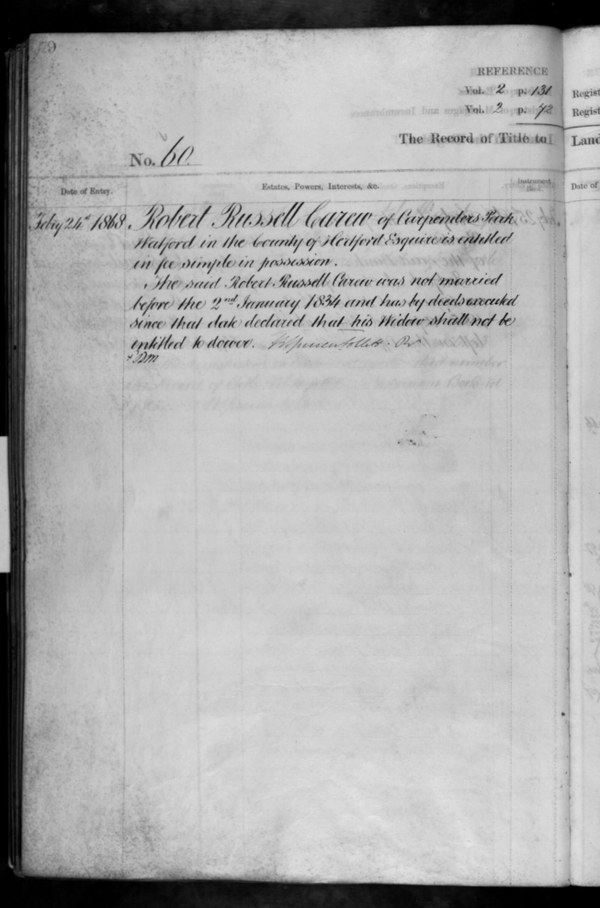 REFERENCE
Vol. 2 p. 131
Vol. 2 p. 72
The Record of Title to
No. 60
Date of Entry.
Estates, Powers, Interests, &c.
Feby 24th 1868
Robert Russell Carew of Carpenders Park
Watford in the County of Hertford Esquire is entitled
in fee simple in possession.
The said Robert Russell Carew was not married
before the 2nd January 1834 and has by deeds executed
since that date declared that his Widow shall not be
entitled to dower.
Regist
Regist
Land
Date of